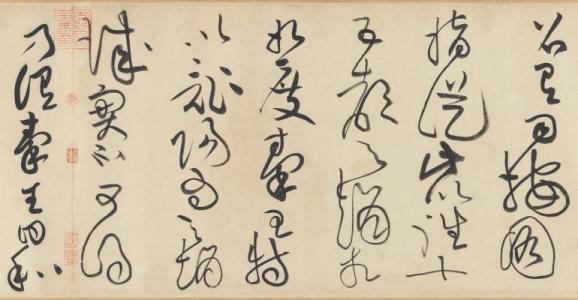 召有司按圖
指從此以往十
五都予趙相
如度秦王特
以詐陽為予趙
城實不可得
乃謂秦王曰和